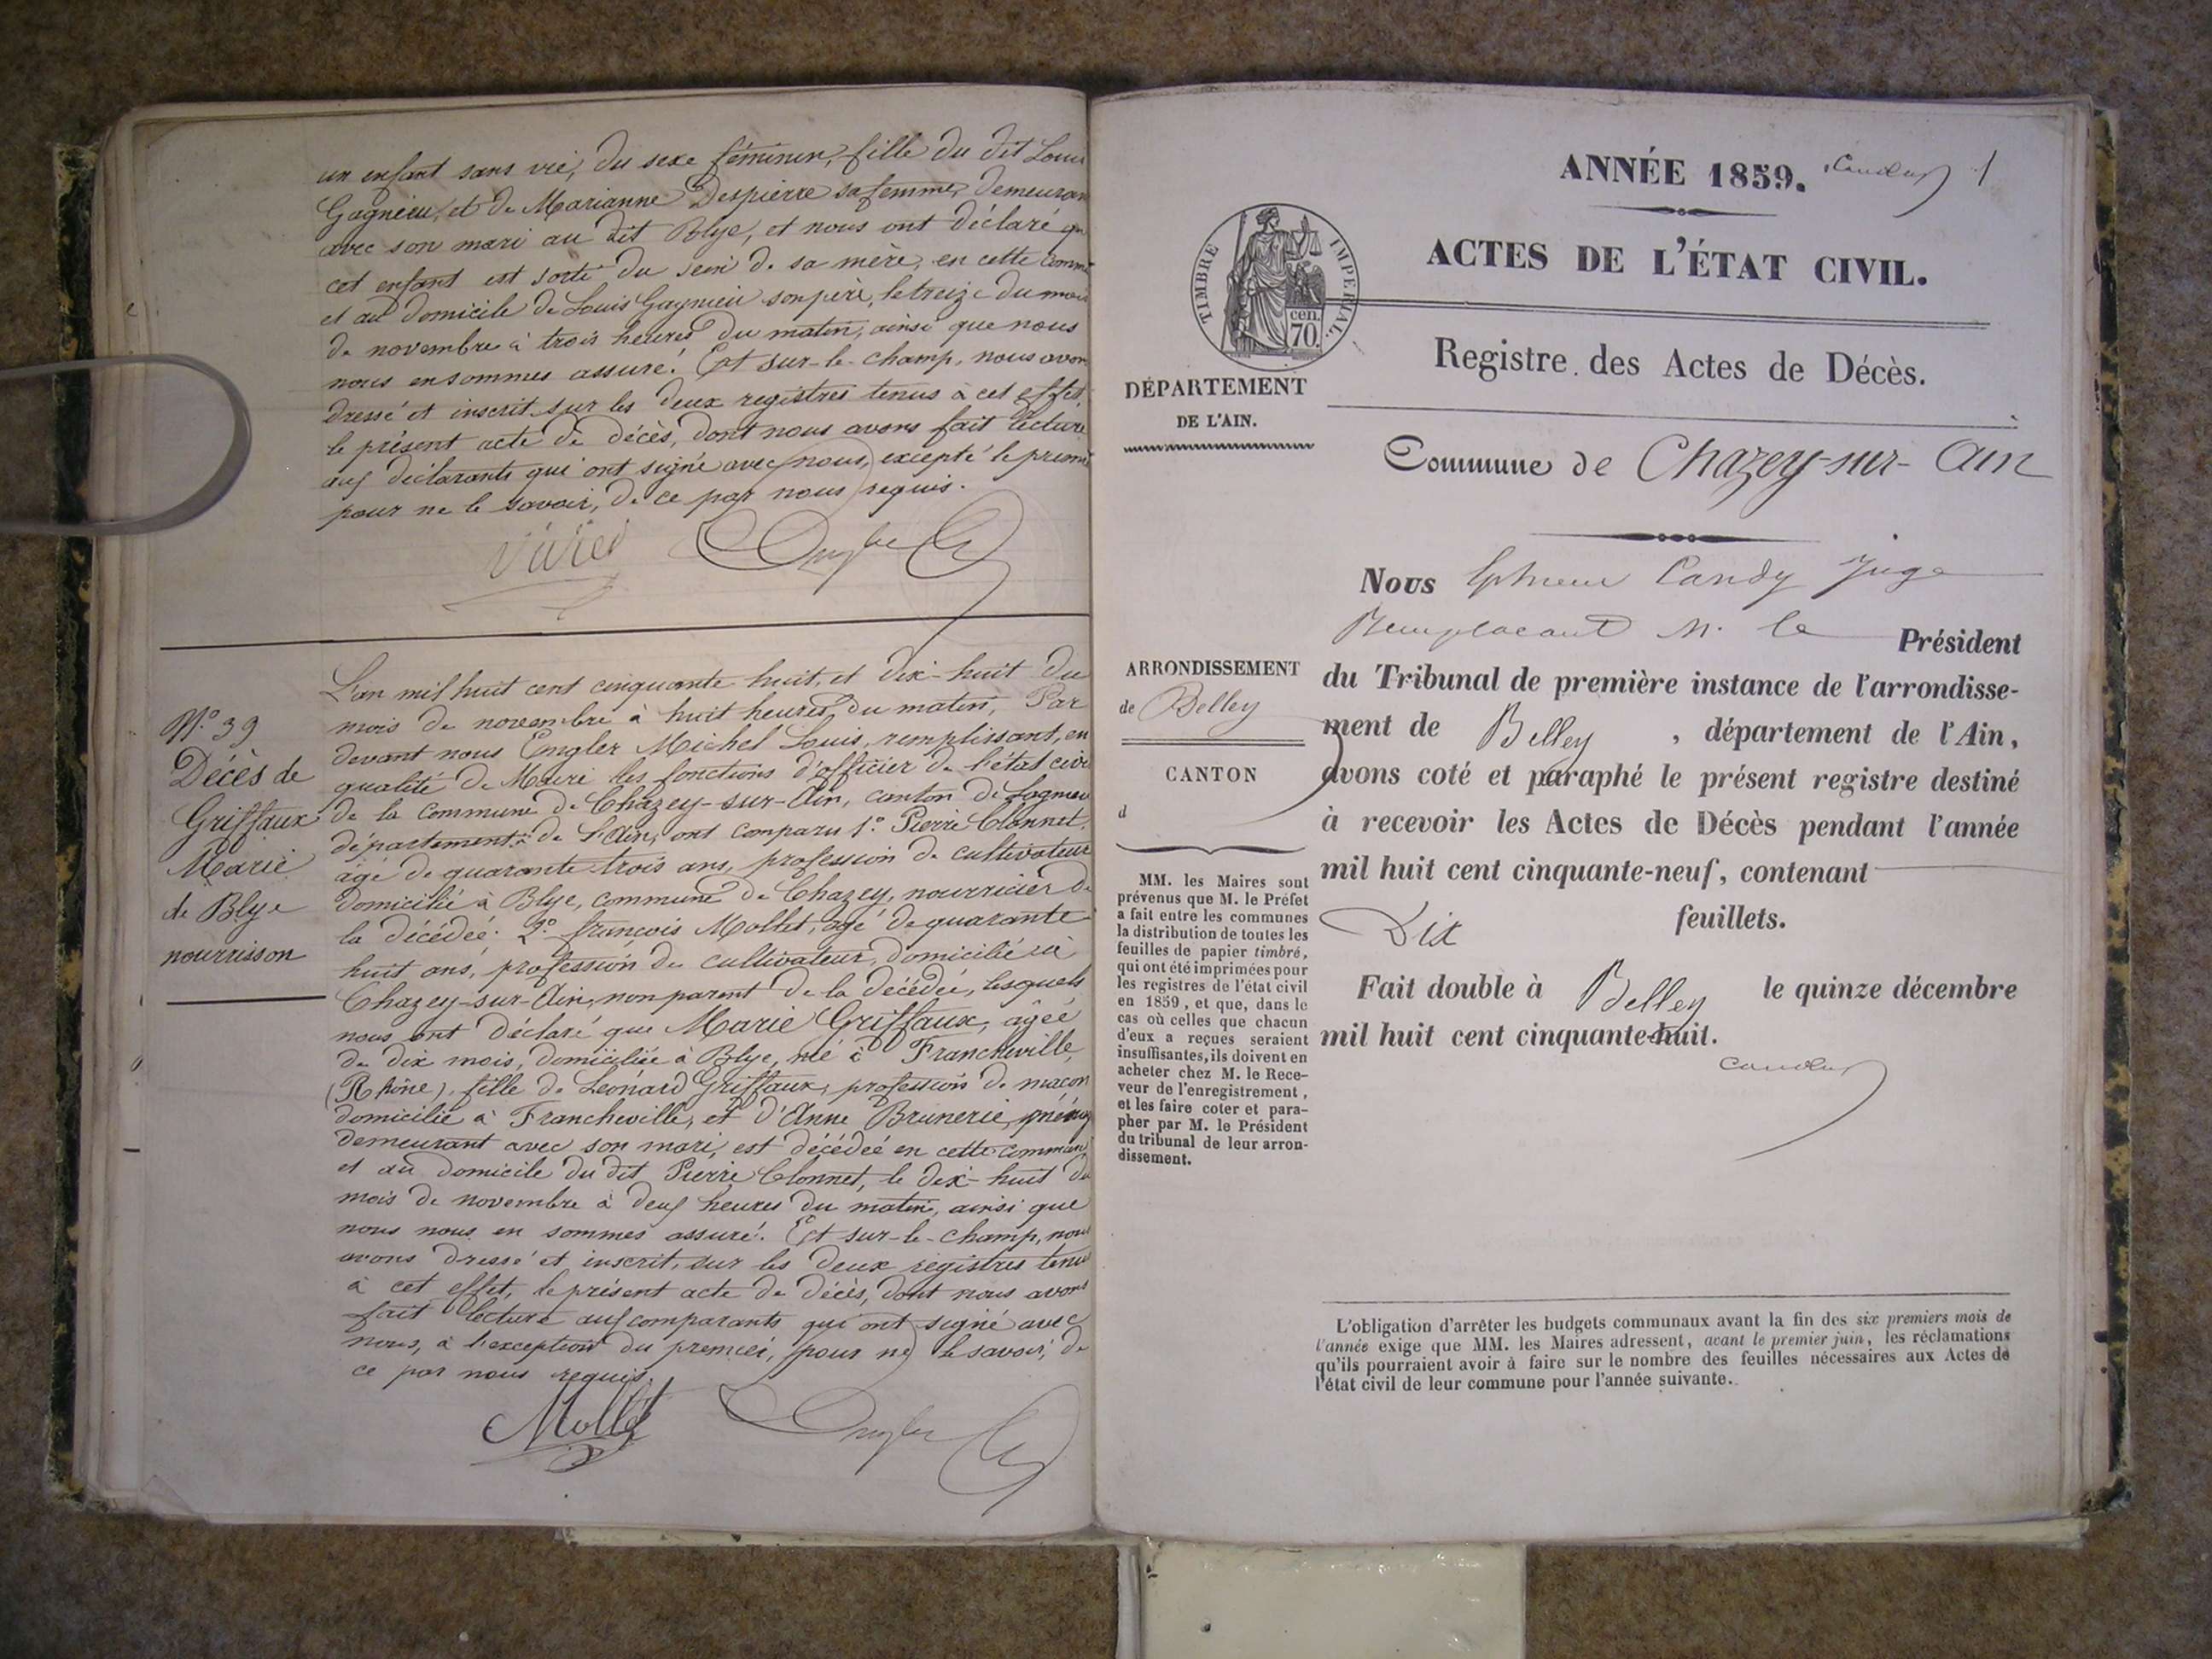 un enfant sans vie, du sexe féminin, fille du dit Louis
Gagnieu, et de Marianne Despierre sa femme, demeuran
avec son mari au dit Blye, et nous ont déclaré qu
cet enfant est sorti du sein de sa mère, en cette comm
et au domicile de Louis Gagnieu son père, le treize du mois
de novembre à trois heures du matin, ainsi que nous
nous en sommes assuré. Et sur-le-champ, nous avon
dressé et inscrit sur les deux registres tenus à cet effet,
le présent acte de décès, dont nous avons fait lecture
aux déclarants qui ont signé avec nous, excepté le premi
pour ne le savoir, de ce par nous requis.
Engler
N.º 39
Décès de
Griffaux
Marie
de Blye
nourrisson
L'an mil huit cent cinquante huit, et dix-huit du
mois de novembre à huit heures du matin, Par
devant nous Engler Michel Louis, remplissant, en
qualité de Maire les fonctions d'officier de l'état civi
de la commune de Chazey-sur-Ain, canton de Lagnieu
département de l'Ain, ont comparu 1.º Pierre Clonnet,
âgé de quarante-trois ans, profession de cultivateur
domicilié à Blye, commune de Chazey, nourricier de
la décédée. 2.º françois Mollet, âgé de quarante
huit ans, profession de cultivateur, domicilié à
Chazey-sur-Ain, non parent de la décédée, lesquels
nous ont déclaré que Marie Griffaux, âgée
de dix mois, domiciliée à Blye, née à Francheville,
(Rhône), fille de Léonard Griffaux, profession de maçon
domicilié à Francheville, et d'Anne Brunerie,
demeurant avec son mari, est décédée en cette commune
et au domicile du dit Pierre Clonnet, le dix-huit du
mois de novembre à deux heures du matin, ainsi que
nous nous en sommes assuré. Et sur-le-champ, nous
avons dressé et inscrit, sur les deux registres tenus
à cet effet, le présent acte de décès, dont nous avons
fait lecture aux comparants qui ont signé avec
nous, à l'exception du premier, pour ne le savoir, de
ce par nous requis.
Mollet Engler
ANNÉE 1859. Candy 1
ACTES DE L'ÉTAT CIVIL.
TIMBRE IMPERIAL.
cen.
70.
Registre des Actes de Décès.
DÉPARTEMENT
DE L'AIN.
Commune de Chazey-sur-Ain
Nous Candy Juge
Remplacant M. le Président
du Tribunal de première instance de l'arrondisse-
ment de Belley , département de l'Ain,
avons coté et paraphé le présent registre destiné
à recevoir les Actes de Décès pendant l'année
mil huit cent cinquante-neuf, contenant
Dix feuillets.
Fait double à Belley le quinze décembre
mil huit cent cinquante-huit.
Candy
ARRONDISSEMENT
de Belley
CANTON
d
MM. les Maires sont
prévenus que M. le Préfet
a fait entre les communes
la distribution de toutes les
feuilles de papier timbré,
qui ont été imprimées pour
les registres de l'état civil
en 1859, et que, dans le
cas où celles que chacun
d'eux a reçues seraient
insuffisantes, ils doivent en
acheter chez M. le Rece-
veur de l'enregistrement,
et les faire coter et para-
pher par M. le Président
du tribunal de leur arron-
dissement.
L'obligation d'arrêter les budgets communaux avant la fin des six premiers mois de
l'année exige que MM. les Maires adressent, avant le premier juin, les réclamations
qu'ils pourraient avoir à faire sur le nombre des feuilles nécessaires aux Actes de
l'état civil de leur commune pour l'année suivante.